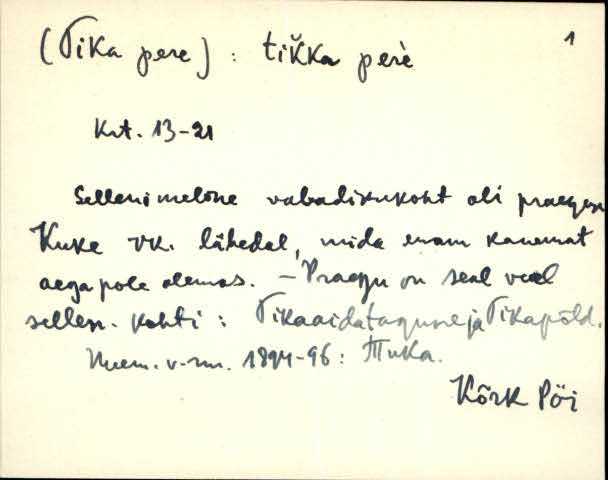 (Tika pere) : tiǨka perè 1
Krt. 13-21
Sellenimeline vabadikukoht oli praeguse
Kuke vk. lähedal, mida enam kauemat
aega pole olemas. – Praegu on seal veel
sellen. kohti : Tikaaidatagune ja Tikapõld.
v-nr. 1894-96: Тика.
Kõrk Pöi